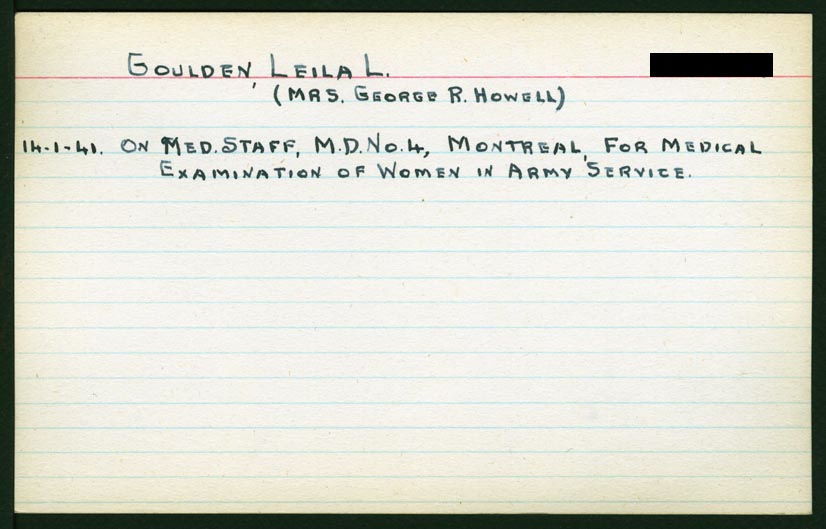 GOULDEN, LEILA L.
(MRS. GEORGE R. HOWELL)
14-1-41. ON MED. STAFF, M.D. NO. 4, MONTREAL, FOR MEDICAL
EXAMINATION OF WOMEN IN ARMY SERVICE.